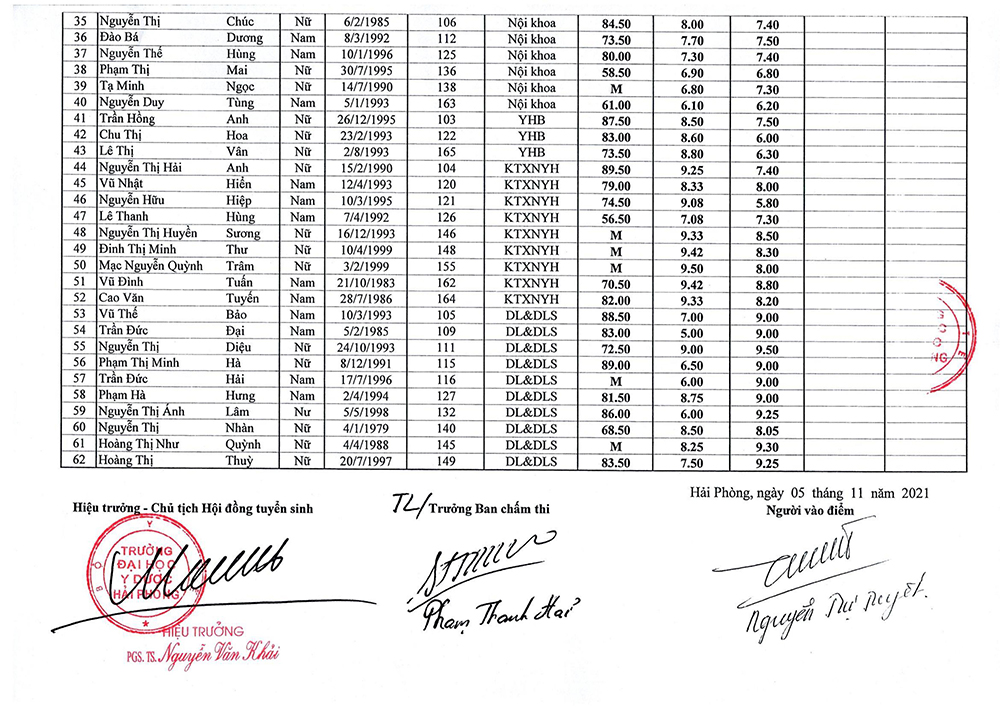 35 Nguyễn Thị Chúc Nữ 6/2/1985 106 Nội khoa 84.50 8.00 7.40
36 Đào Bá Dương Nam 8/3/1992 112 Nội khoa 73.50 7.70 7.50
37 Nguyễn Thế Hùng Nam 10/1/1996 125 Nội khoa 80.00 7.30 7.40
38 Phạm Thị Mai Nữ 30/7/1995 136 Nội khoa 58.50 6.90 6.80
39 Tạ Minh Ngọc Nữ 14/7/1990 138 Nội khoa M 6.80 7.30
40 Nguyễn Duy Tùng Nam 5/1/1993 163 Nội khoa 61.00 6.10 6.20
41 Trần Hồng Anh Nữ 26/12/1995 103 YHB 87.50 8.50 7.50
42 Chu Thị Hoa Nữ 23/2/1993 122 YHB 83.00 8.60 6.00
43 Lê Thị Vân Nữ 2/8/1993 165 YHB 73.50 8.80 6.30
44 Nguyễn Thị Hải Anh Nữ 15/2/1990 104 KTXNYH 89.50 9.25 7.40
45 Vũ Nhật Hiển Nam 12/4/1993 120 KTXNYH 79.00 8.33 8.00
46 Nguyễn Hữu Hiệp Nam 10/3/1995 121 KTXNYH 74.50 9.08 5.80
47 Lê Thanh Hùng Nam 7/4/1992 126 KTXNYH 56.50 7.08 7.30
48 Nguyễn Thị Huyền Sương Nữ 16/12/1993 146 KTXNYH M 9.33 8.50
49 Đinh Thị Minh Thư Nữ 10/4/1999 148 KTXNYH M 9.42 8.30
50 Mạc Nguyễn Quỳnh Trâm Nữ 3/2/1999 155 KTXNYH M 9.50 8.00
51 Vũ Đình Tuấn Nam 21/10/1983 162 KTXNYH 70.50 9.42 8.80
52 Cao Văn Tuyến Nam 28/7/1986 164 KTXNYH 82.00 9.33 8.20
53 Vũ Thế Bảo Nam 10/3/1993 105 DL&DLS 88.50 7.00 9.00
54 Trần Đức Đại Nam 5/2/1985 109 DL&DLS 83.00 5.00 9.00
55 Nguyễn Thị Diệu Nữ 24/10/1993 111 DL&DLS 72.50 9.00 9.50
56 Phạm Thị Minh Hà Nữ 8/12/1991 115 DL&DLS 89.00 6.50 9.00
57 Trần Đức Hải Nam 17/7/1996 116 DL&DLS M 6.00 9.00
58 Phạm Hà Hưng Nam 2/4/1994 127 DL&DLS 81.50 8.75 9.00
59 Nguyễn Thị Ánh Lâm Nư 5/5/1998 132 DL&DLS 86.00 6.00 9.25
60 Nguyễn Thị Nhàn Nữ 4/1/1979 140 DL&DLS 68.50 8.50 8.05
61 Hoàng Thị Như Quỳnh Nữ 4/4/1988 145 DL&DLS M 8.25 9.30
62 Hoàng Thị Thuỳ Nữ 20/7/1997 149 DL&DLS 83.50 7.50 9.25
Hải Phòng, ngày 05 tháng 11 năm 2021
Hiệu trưởng - Chủ tịch Hội đồng tuyển sinh TL/ Trưởng Ban chấm thi Người vào điểm
TRƯỜNG
ĐẠI HỌC
Y DƯỢC
HẢI PHÒNG
HIỆU TRƯỞNG
PGS. TS. Nguyễn Văn Khải
Phạm Thanh Hải
Nguyễn Thị Tuyết